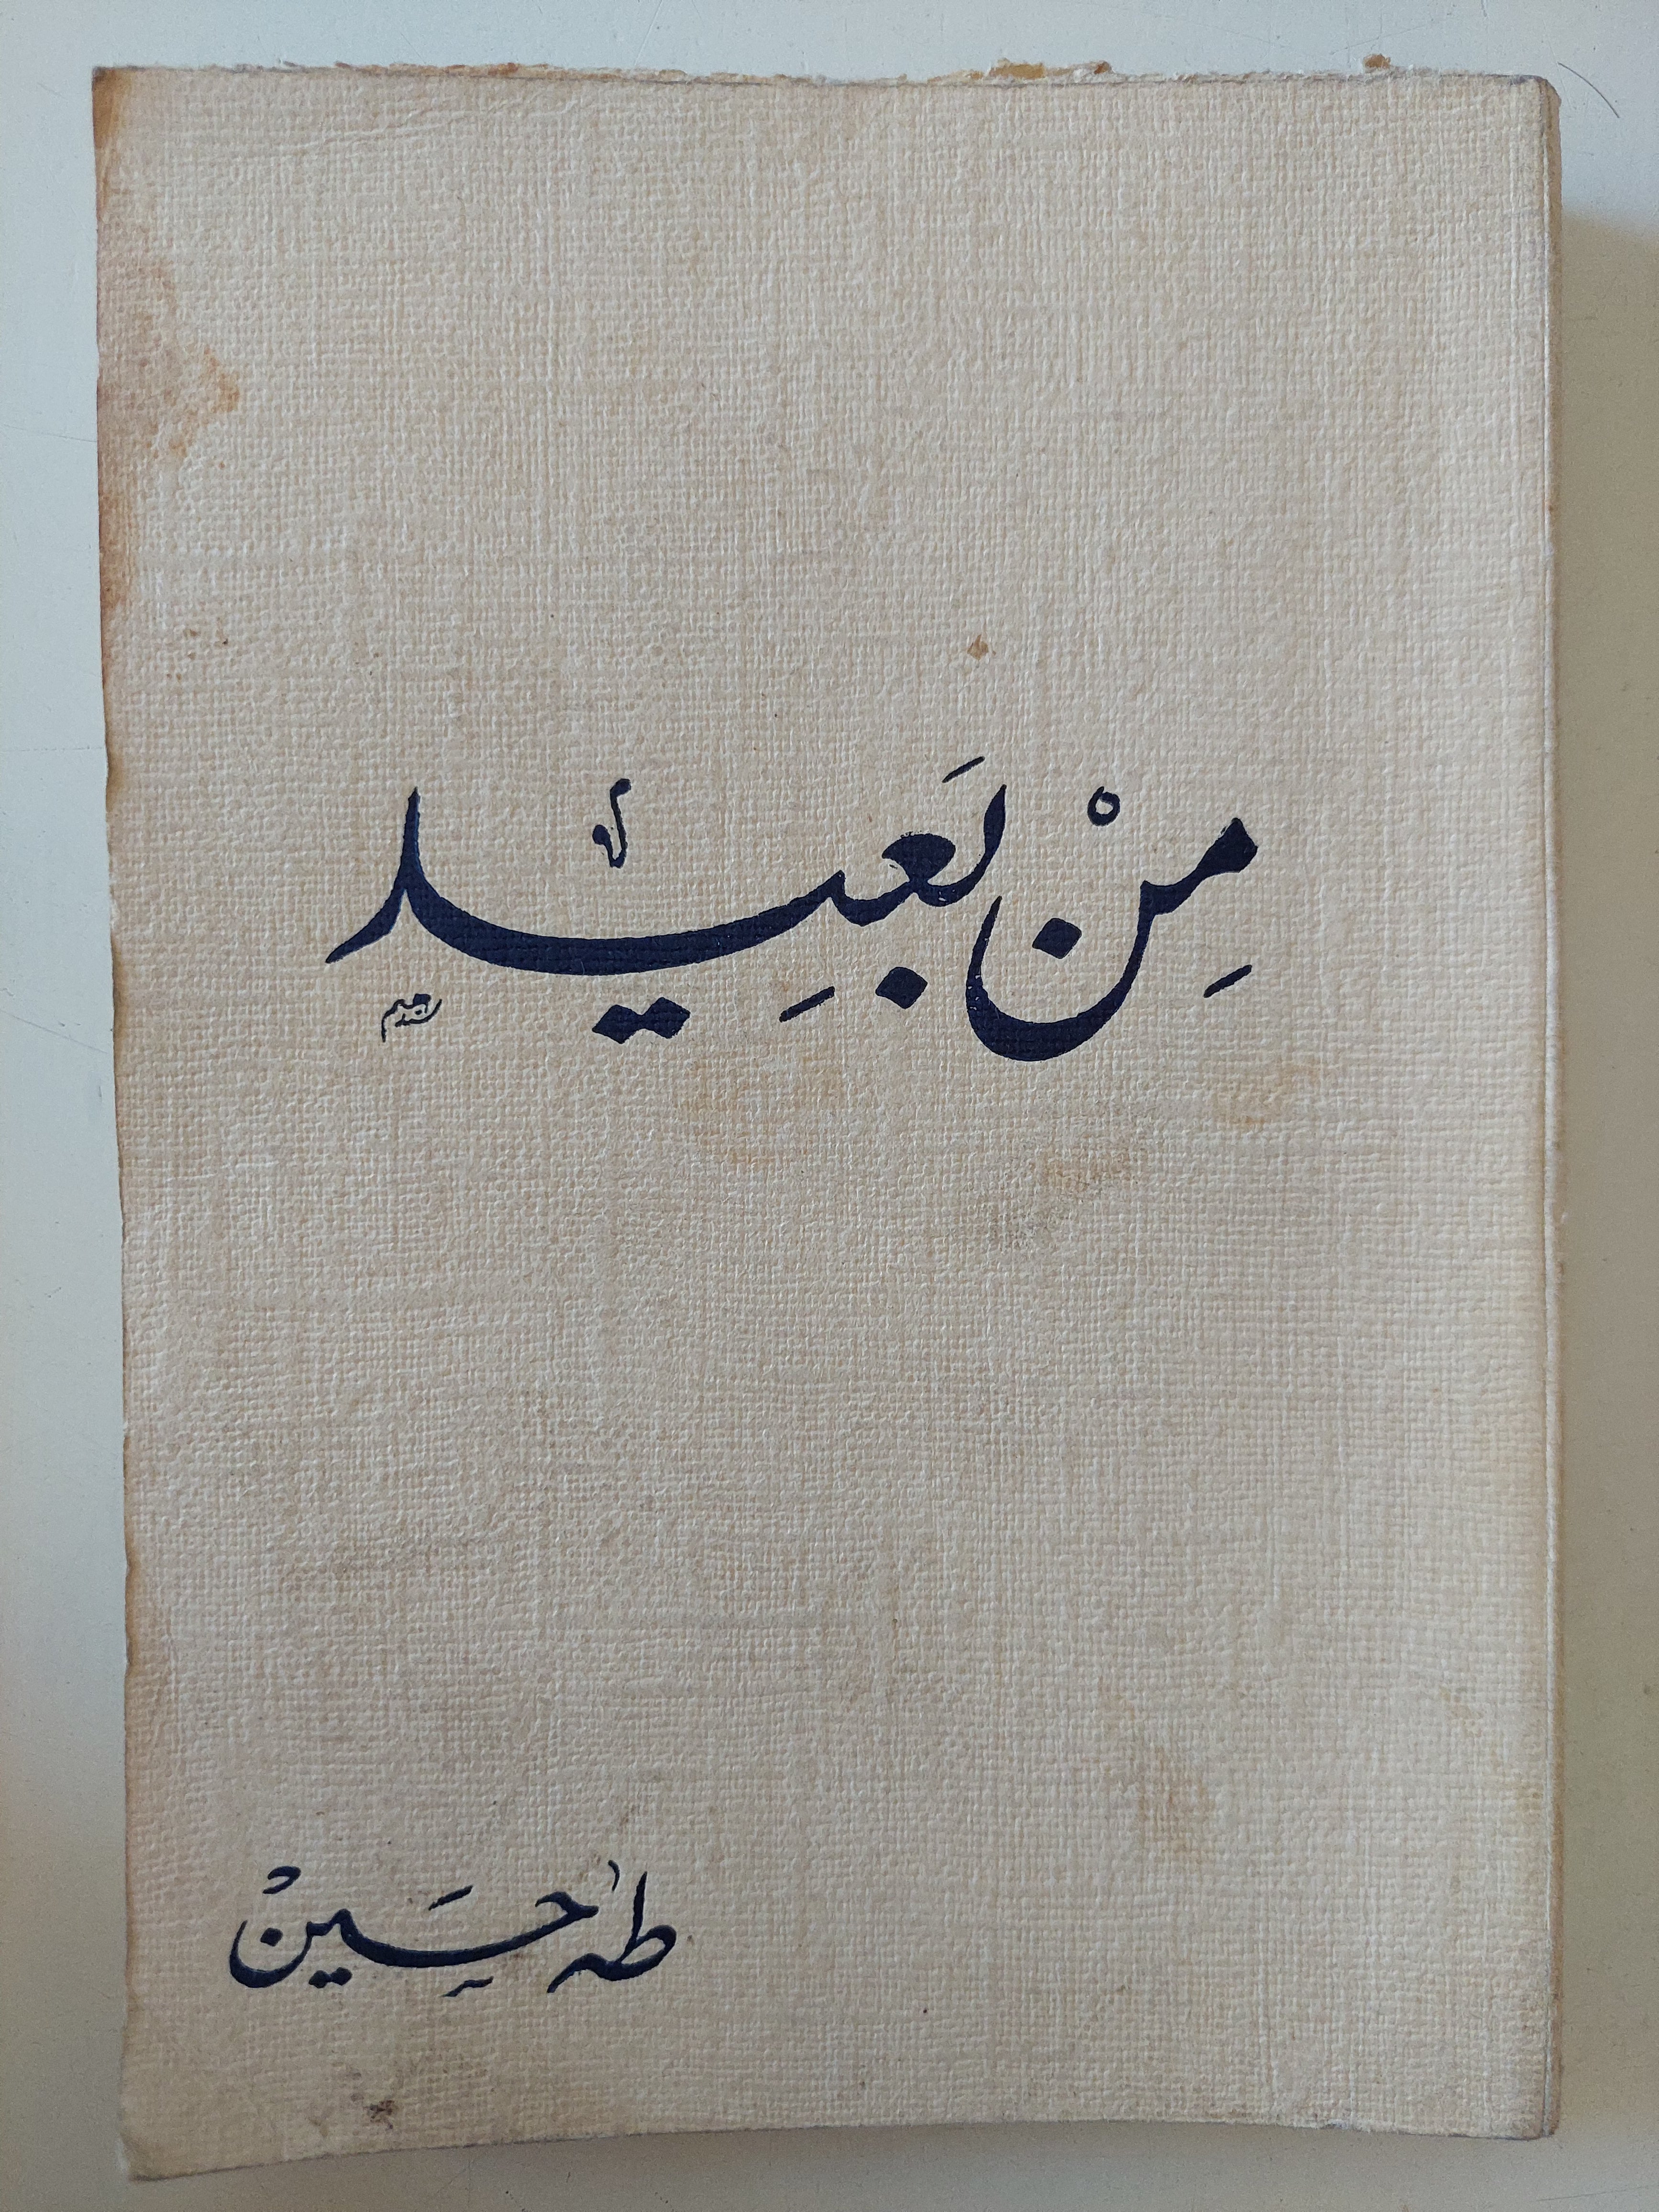 مِنْ بَعِيد
طه حسَين